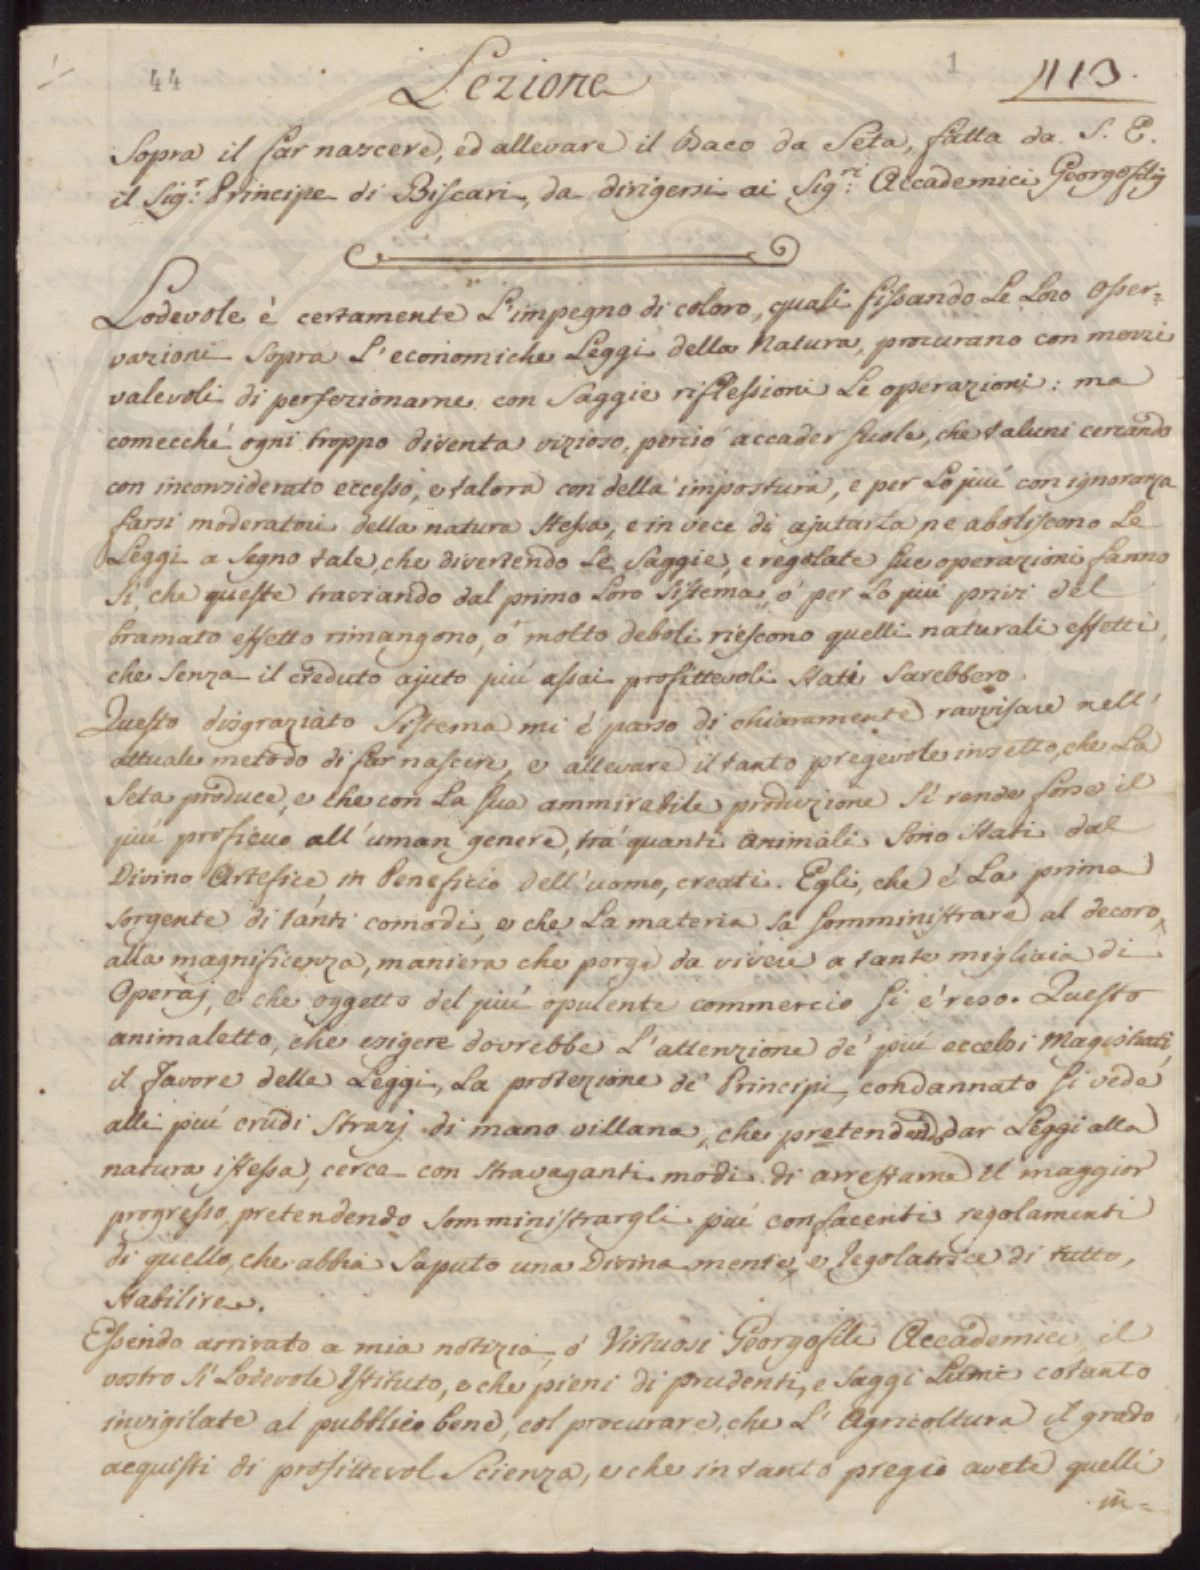 44
1
113.
Lezione
Sopra il far nascere, ed allevare il Baco da Seta, fatta da S. E.
il Sig.r Principe di Biscari, da dirigersi ai Sig.ri Accademici Georgofilj
Lodevole è certamente L'impegno di coloro, quali fissando Le Loro Osser=
vazioni Sopra L'economiche Leggi della Natura, procurano con mezzi
valevoli di perfezionarne con Saggie riflessioni Le operazioni: ma
comecché ogni troppo diventa vizioso, perciò accader suole, che taluni cercando
con inconsiderato eccesso, e talora con della impostura, e per Lo più con ignoranza
farsi moderatori della natura stessa, e in vece di ajutarla, ne aboliscono Le
Leggi a Segno tale, che divertendo Le Saggie, e regolate sue operazioni fanno
Si, che queste traviando dal primo Loro Sistema, o per Lo più privi del
bramato effetto rimangono, o molto deboli riescono quelli naturali effetti,
che Senza il creduto ajuto più assai profittevoli Stati Sarebbero.
Questo disgraziato Sistema mi è parso di chiaramente ravvisare nell'
attuale metodo di far nascere, e allevare il tanto pregevole insetto, che La
Seta produce, e che con La sua ammirabile produzione Si rende forse il
più proficuo all'uman genere, tra quanti animali Sono Stati dal
Divino Artefice in Beneficio dell'uomo, creati. Egli, che è La prima
sorgente di tanti comodi, e che La materia sa Somministrare al decoro,
alla magnificenza, maniera che porge da vivere a tante migliaia di
Operaj, e che oggetto del più opulente commercio Si è reso. Questo
animaletto, che esigere dovrebbe L'attenzione de' più eccelsi Magistrati,
il favore delle Leggi, La protezione de' Principi, condannato Si vede
alli più crudi Strazj di mano villana, che pretendendo dar Leggi alla
natura istessa, cerca con stravaganti modi di arrestarne il maggior
progresso, pretendendo Somministrargli più confacenti regolamenti
di quello, che abbia Saputo una Divina mente, e regolatrice di tutto,
Stabilire.
Essendo arrivato a mia notizia, o Virtuosi Georgofili Accademici, il
vostro Si Lodevole Istituto, e che pieni di prudenti, e Saggi Lumi cotanto
invigilate al pubblico bene, col procurare, che L'Agricoltura il grado
acquisti di profittevol Scienza, e che in tanto pregio avete quelli
in=